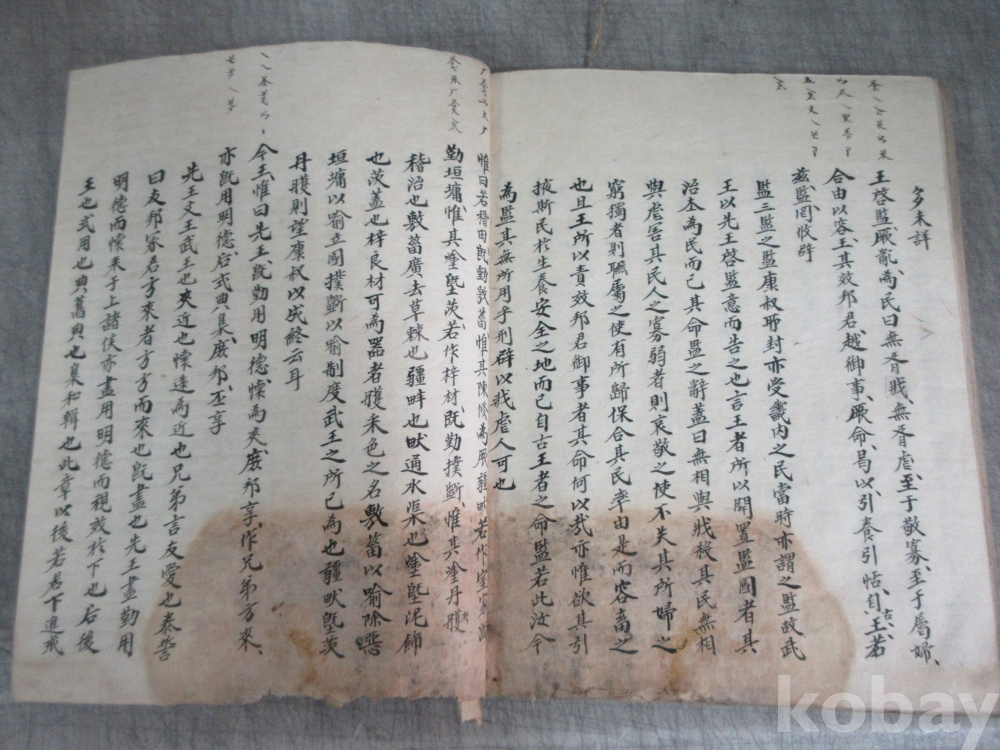 多未詳
王啓監厥亂為民曰無胥戕無胥虐至于敬寡至于屬婦
合由以容王其效邦君越御事厥命曷以引養引恬自古王若
茲監罔攸辟
監三監之監康叔所封亦受畿內之民當時亦謂之監故武
王以先王啓監意而告之也言王者所以開置監國者其
治本為民而已其命監之辭蓋曰無相與戕殺其民無相
與虐害其民人之寡弱者則哀敬之使不失其所婦之
窮獨者則聯屬之使有所歸保合其民率由是而容畜之
也且王所以責效邦君御事者其命何以哉亦惟欲其引
掖斯民於生養安全之地而已自古王者之命監若此汝今
為監其無所用乎刑辟以戕虐人可也
惟曰若稽田既勤敷菑惟其陳修為厥疆畎若作室家既
勤垣墉惟其塗塈茨若作梓材既勤樸斲惟其塗丹雘
稽治也敷菑廣去草棘也疆畔也畎通水渠也塗塈泥飾
也茨蓋也梓良材可為器者雘采色之名敷菑以喻除惡
垣墉以喻立國樸斲以喻制度武王之所已為也疆畎塈茨
丹雘則望康叔以成終云耳
今王惟曰先王既勤用明德懷為夾庶邦享作兄弟方來
亦既用明德后式典集庶邦丕享
先王文王武王也夾近也懷遠為近也兄弟言友愛也泰誓
曰友邦冢君方來者方方而來也既盡也先王盡勤用
明德而懷來于上諸侯亦盡用明德而視效於下也后後
王也式用也典舊典也集和輯也此章以後若臣下進戒
kobay